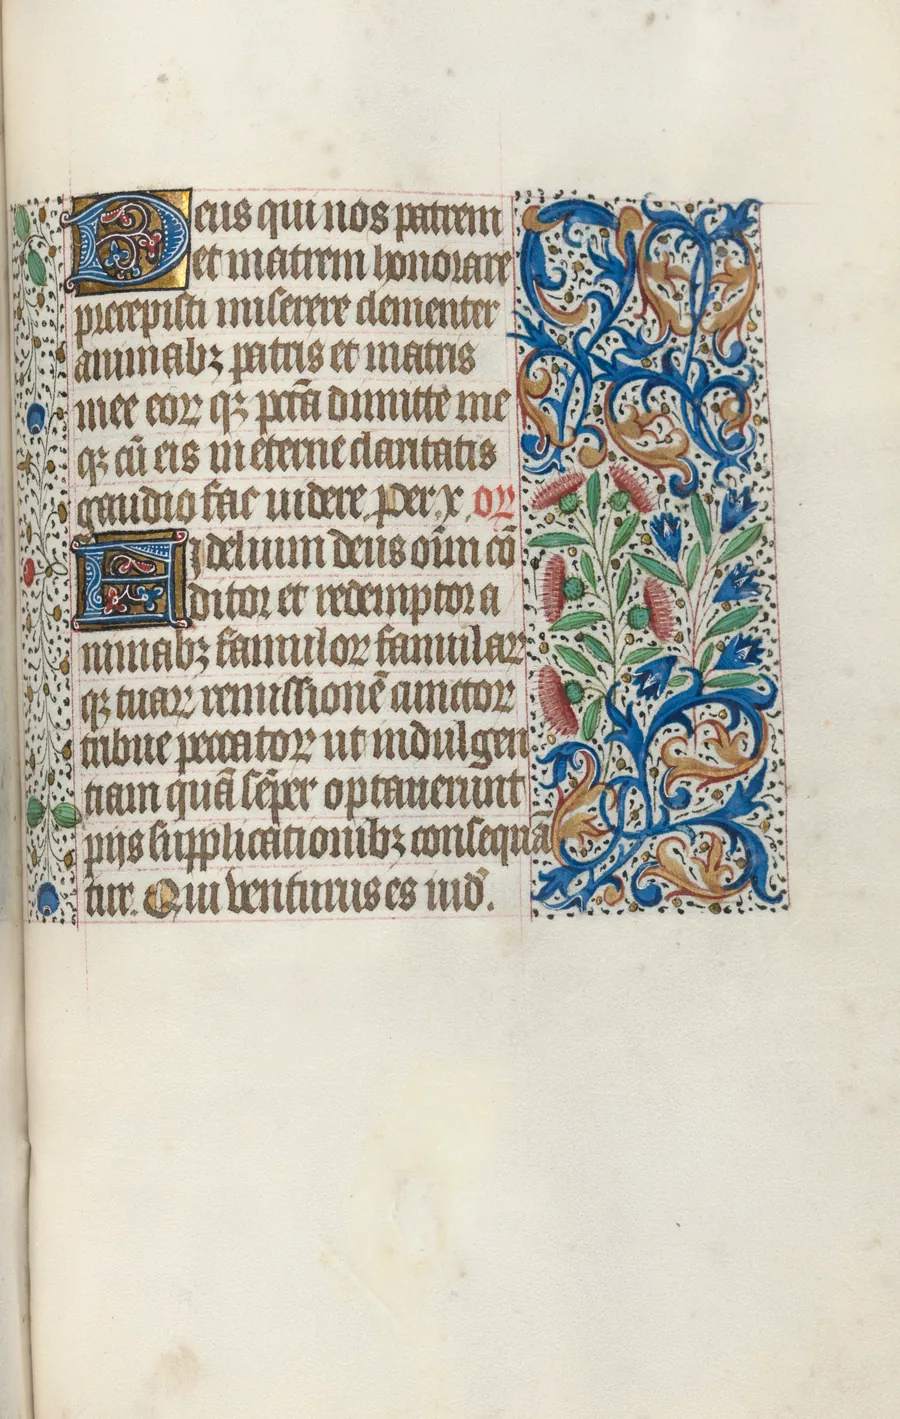 Deus qui nos patrem
et matrem honorare
precepisti miserere clementer
animabꝫ patris et matris
mee eoꝝ qꝫ pctā dimitte me
qꝫ cū eis in eterne claritatis
gaudio fac uidere. Per. x. oꝝ
Fidelium deus oīm cō
ditor et redemptor a
nimabꝫ famuloꝝ famulaꝝ
qꝫ tuaꝝ remissionē cunctoꝝ
tribue peccatoꝝ ut indulgen
tiam quā sēper optauerunt
pijs supplicationibꝫ consequā
tur. Qui venturus es iud̉.